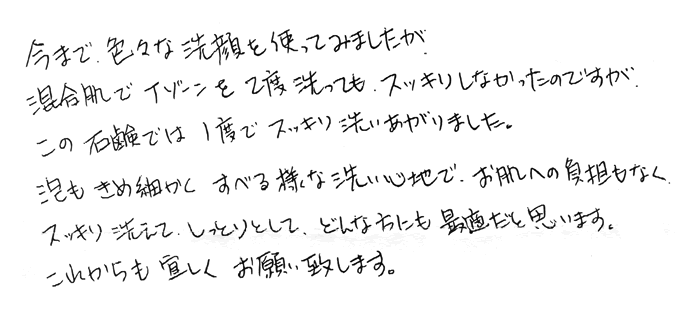 今まで、色々な洗顔を使ってみましたが、
混合肌でTゾーンを2度洗っても、スッキリしなかったのですが、
この石鹸では1度でスッキリ洗いあがりました。
泡もきめ細かくすべる様な洗い心地で、お肌への負担もなく、
スッキリ洗えて、しっとりとして、どんな方にも最適だと思います。
これからも宜しくお願い致します。